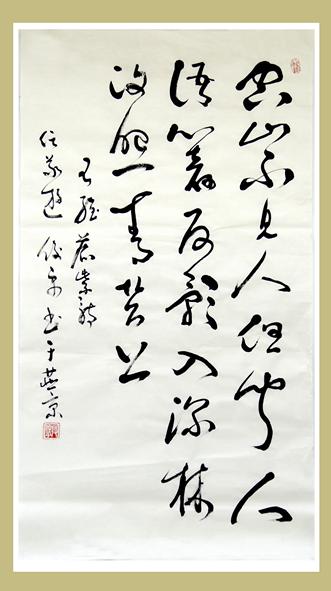 空山不見人但聞人
語響返景入深林
復照青苔上
王維鹿柴詩
書于燕京